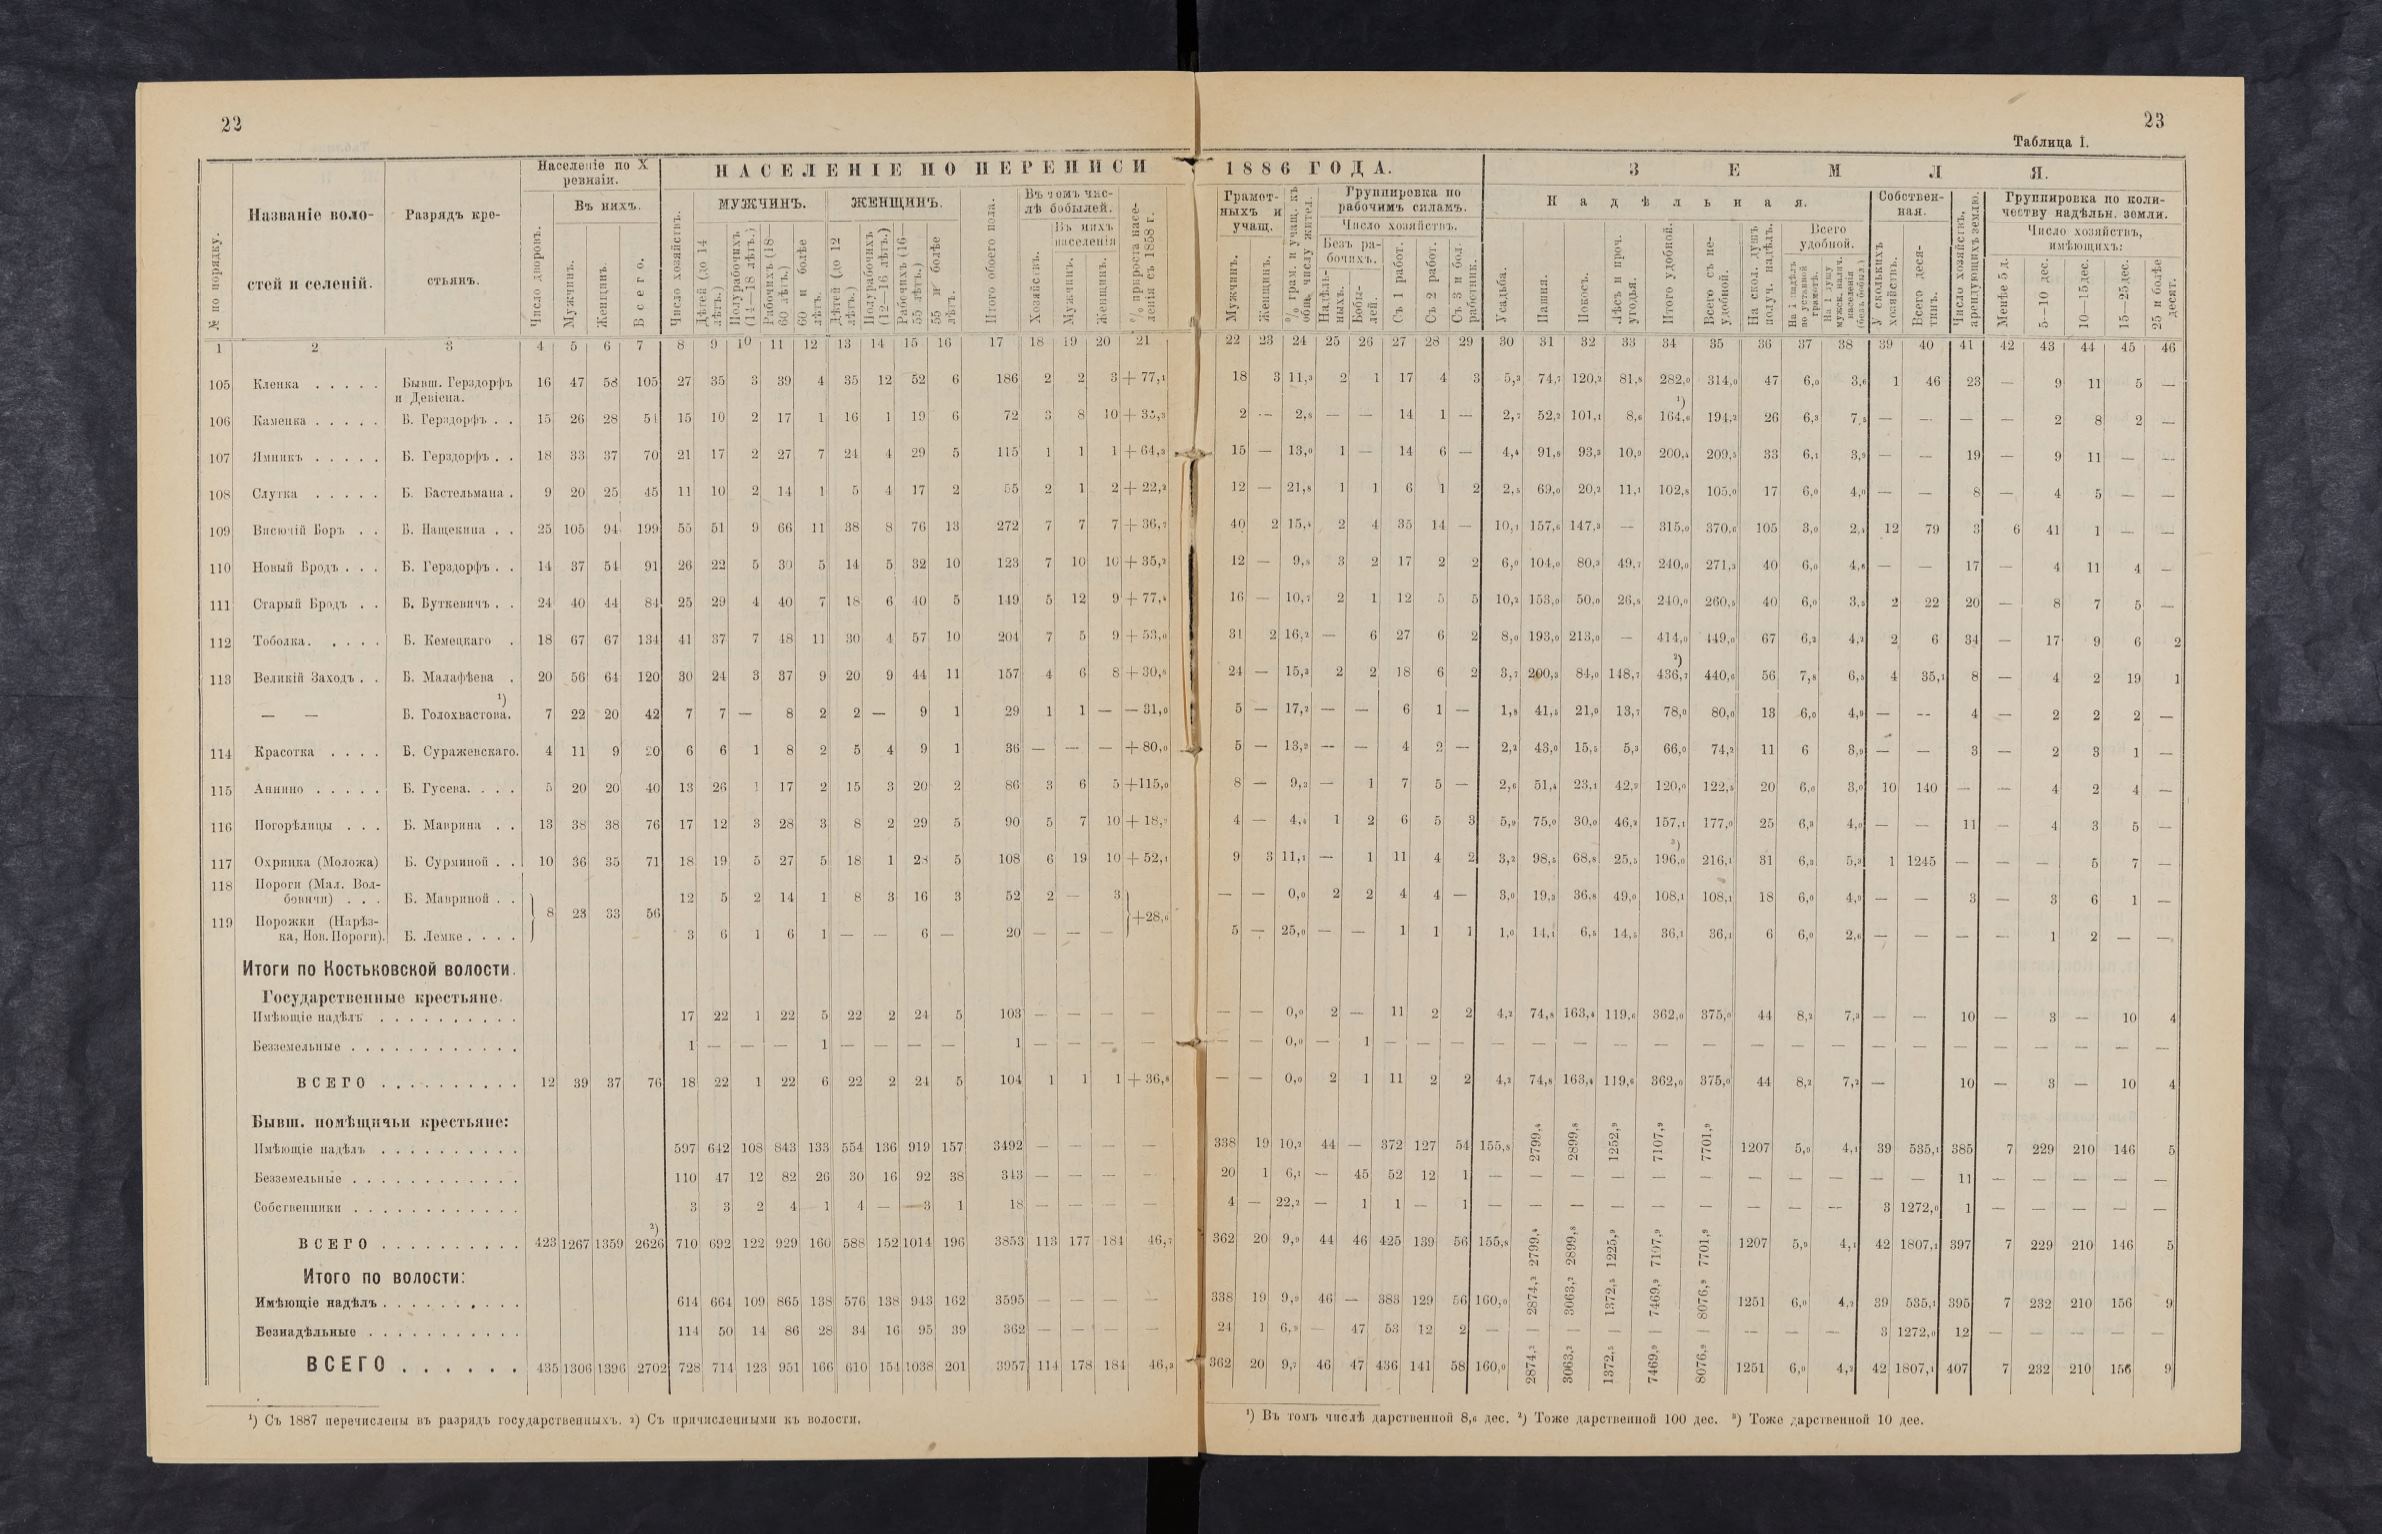 22
23
Таблица I.
Названіе воло-
стей и селеній.
Разрядъ кре-
стьянъ.
Населеніе по X
ревизіи.
НАСЕЛЕНІЕ ПО ПЕРЕПИСИ 1886 ГОДА.
ЗЕМЛЯ.
№ по порядку.
Число дворовъ.
Въ нихъ.
Мужчинъ.
Женщинъ.
Всего.
Число хозяйствъ.
МУЖЧИНЪ.
Дѣтей (до 14 лѣтъ.)
Полурабочихъ (14—18 лѣтъ.)
Рабочихъ (18—60 лѣтъ.)
60 и болѣе лѣтъ.
ЖЕНЩИНЪ.
Дѣтей (до 12 лѣтъ.)
Полурабочихъ (12—16 лѣтъ.)
Рабочихъ (16—55 лѣтъ.)
55 и болѣе лѣтъ.
Итого обоего пола.
Въ томъ чис-
лѣ бобылей.
Хозяйствъ.
Въ нихъ
населенія
Мужчинъ.
Женщинъ.
% прироста насе-
ленія съ 1858 г.
Грамот-
ныхъ и
учащ.
Мужчинъ.
Женщинъ.
% грам. и учащ. къ
общ. числу жител.
Группировка по
рабочимъ силамъ.
Число хозяйствъ.
Безъ ра-
бочихъ.
Надѣль-
ныхъ.
Бобы-
лей.
Съ 1 работ.
Съ 2 работ.
Съ 3 и бол.
работник.
Надѣльная.
Усадьба.
Пашня.
Покосъ.
Лѣсъ и проч.
угодья.
Итого удобной.
Всего съ не-
удобной.
На скол. душъ
получ. надѣлъ.
Всего
удобной.
На 1 надѣлъ
по уставной
грамотѣ.
На 1 душу
мужск. налич.
населенія
(безъ бобыл.)
Собствен-
ная.
У сколькихъ
хозяйствъ.
Всего деся-
тинъ.
Число хозяйствъ,
арендующихъ землю.
Группировка по коли-
честву надѣльн. земли.
Число хозяйствъ,
имѣющихъ:
Менѣе 5 д.
5—10 дес.
10—15 дес.
15—25 дес.
25 и болѣе
десят.
1 2 3 4 5 6 7 8 9 10 11 12 13 14 15 16 17 18 19 20 21 22 23 24 25 26 27 28 29 30 31 32 33 34 35 36 37 38 39 40 41 42 43 44 45 46
105 Кленка . . . . . Бывш. Герздорфъ 16 47 58 105 27 35 3 39 4 35 12 52 6 186 2 2 3 + 77,1 18 3 11,3 2 1 17 4 3 5,3 74,7 120,2 81,8 282,0 314,0 47 6,0 3,6 1 46 23 — 9 11 5 —
и Девіена.
106 Каменка . . . . . Б. Герздорфъ . . 15 26 28 54 15 10 2 17 1 16 1 19 6 72 3 8 10 + 33,3 2 — 2,8 — — 14 1 — 2,7 52,2 101,1 8,6 ¹) 164,6 194,2 26 6,3 7,5 — — — — 2 8 2 —
107 Ямникъ . . . . . Б. Герздорфъ . . 18 33 37 70 21 17 2 27 7 24 4 29 5 115 1 1 1 + 64,3 15 — 13,0 1 — 14 6 — 4,4 91,8 93,3 10,9 200,4 209,5 33 6,1 3,9 — — 19 — 9 11 — —
108 Слутка . . . . . Б. Бастельмана . 9 20 25 45 11 10 2 14 1 5 4 17 2 55 2 1 2 + 22,2 12 — 21,8 1 1 6 1 2 2,5 69,0 20,2 11,1 102,8 105,0 17 6,0 4,0 — — 8 — 4 5 — —
109 Висючій Боръ . . Б. Нащекина . . 25 105 94 199 55 51 9 66 11 38 8 76 13 272 7 7 7 + 36,7 40 2 15,4 2 4 35 14 — 10,1 157,6 147,3 — 315,0 370,6 105 3,0 2,4 12 79 3 6 41 1 — —
110 Новый Бродъ . . . Б. Герздорфъ . . 14 37 54 91 26 22 5 30 5 14 5 32 10 123 7 10 10 + 35,2 12 — 9,8 3 2 17 2 2 6,0 104,0 80,3 49,7 240,0 271,3 40 6,0 4,6 — — 17 — 4 11 4 —
111 Старый Бродъ . . Б. Буткевичъ . . 24 40 44 84 25 29 4 40 7 18 6 40 5 149 5 12 9 + 77,4 16 — 10,7 2 1 12 5 5 10,2 153,0 50,0 26,8 240,0 260,5 40 6,0 3,5 2 22 20 — 8 7 5 —
112 Тоболка. . . . . Б. Кемецкаго . 18 67 67 134 41 37 7 48 11 30 4 57 10 204 7 5 9 + 53,0 31 2 16,2 — 6 27 6 2 8,0 193,0 213,0 — 414,0 449,0 67 6,2 4,2 2 6 34 — 17 9 6 2
113 Великій Заходъ . . Б. Малафѣева . 20 56 64 120 30 24 3 37 9 20 9 44 11 157 4 6 8 + 30,8 24 — 15,3 2 2 18 6 2 3,7 200,3 84,0 148,7 ²) 436,7 440,6 56 7,8 6,5 4 35,1 8 — 4 2 19 1
— — Б. Голохвастова. ¹) 7 22 20 42 7 7 — 8 2 2 — 9 1 29 1 1 — — 31,0 5 — 17,2 — — 6 1 — 1,8 41,5 21,0 13,7 78,0 80,0 13 6,0 4,9 — — 4 — 2 2 2 —
114 Красотка . . . . Б. Суражевскаго. 4 11 9 20 6 6 1 8 2 5 4 9 1 36 — — — + 80,0 5 — 13,9 — — 4 2 — 2,2 43,0 15,5 5,3 66,0 74,2 11 6 3,9 — — 3 — 2 3 1 —
115 Аннино . . . . . Б. Гусева. . . . 5 20 20 40 13 26 1 17 2 15 3 20 2 86 3 6 5 +115,0 8 — 9,3 — 1 7 5 — 2,6 51,4 23,1 42,9 120,0 122,5 20 6,0 3,0 10 140 — — 4 2 4 —
116 Погорѣлицы . . . Б. Маврина . . 13 38 38 76 17 12 3 28 3 8 2 29 5 90 5 7 10 + 18,7 4 — 4,4 1 2 6 5 3 5,9 75,0 30,0 46,2 157,1 177,0 25 6,3 4,0 — — 11 — 4 3 5 —
117 Охринка (Моложа) Б. Сурминой . . 10 36 35 71 18 19 5 27 5 18 1 28 5 108 6 19 10 + 52,1 9 3 11,1 — 1 11 4 2 3,2 98,5 68,8 25,5 ³) 196,0 216,1 31 6,3 5,3 1 1245 — — — 5 7 —
118 Пороги (Мал. Вол-
бовичи) . . . Б. Мавриной . . 12 5 2 14 1 8 3 16 3 52 2 — 3 — — 0,0 2 2 4 4 — 3,0 19,3 36,8 49,0 108,1 108,1 18 6,0 4,9 — — 3 — 3 6 1 —
8 23 33 56 +28,6
119 Порожки (Нарѣз-
ка, Нов. Пороги). Б. Лемке . . . . 3 6 1 6 1 — — 6 — 20 — — — 5 — 25,0 — — 1 1 1 1,0 14,1 6,5 14,5 36,1 36,1 6 6,0 2,6 — — — — 1 2 — —
Итоги по Костьковской волости.
Государственные крестьяне.
Имѣющіе надѣлъ . . . . . . . . . . 17 22 1 22 5 22 2 24 5 103 — — — — — — 0,0 2 — 11 2 2 4,2 74,8 163,4 119,6 362,0 375,0 44 8,2 7,3 — — 10 — 3 — 10 4
Безземельные . . . . . . . . . . . . 1 — — — 1 — — — — 1 — — — — — — 0,0 — 1 — — — — — — — — — — — — — — — — — — — —
ВСЕГО . . . . . . . . . . 12 39 37 76 18 22 1 22 6 22 2 24 5 104 1 1 1 + 36,8 — — 0,0 2 1 11 2 2 4,2 74,8 163,4 119,6 362,0 375,0 44 8,2 7,2 — 10 — 3 — 10 4
Бывш. помѣщичьи крестьяне:
Имѣющіе надѣлъ . . . . . . . . . . 597 642 108 843 133 554 136 919 157 3492 — — — — 338 19 10,2 44 — 372 127 54 155,8 2799,4 2899,8 1252,9 7107,9 7701,9 1207 5,9 4,1 39 535,1 385 7 229 210 146 5
Безземельные . . . . . . . . . . . . 110 47 12 82 26 30 16 92 38 343 — — — — 20 1 6,1 — 45 52 12 1 — — — — — — — — — — — 11 — — — — —
Собственники . . . . . . . . . . . . 3 3 2 4 1 4 — 3 1 18 — — — — 4 — 22,2 — 1 1 — 1 — — — — — — — — — 3 1272,0 1 — — — — —
ВСЕГО . . . . . . . . . . 423 1267 1359 ²) 2626 710 692 122 929 160 588 152 1014 196 3853 113 177 184 46,7 362 20 9,9 44 46 425 139 56 155,8 2799,4 2899,8 1225,9 7107,9 7701,9 1207 5,9 4,1 42 1807,1 397 7 229 210 146 5
Итого по волости:
Имѣющіе надѣлъ . . . . . . . . . . 614 664 109 865 138 576 138 943 162 3595 — — — — 338 19 9,9 46 — 383 129 56 160,0 2874,2 3063,2 1372,5 7469,9 8076,9 1251 6,0 4,2 39 535,1 395 7 232 210 156 9
Безнадѣльные . . . . . . . . . . . 114 50 14 86 28 34 16 95 39 362 — — — — 24 1 6,9 — 47 53 12 2 — — — — — — — — — 3 1272,0 12 — — — — —
ВСЕГО . . . . . . 435 1306 1396 2702 728 714 123 951 166 610 154 1038 201 3957 114 178 184 46,3 362 20 9,7 46 47 436 141 58 160,0 2874,2 3063,2 1372,5 7469,9 8076,9 1251 6,0 4,2 42 1807,1 407 7 232 210 156 9
¹) Съ 1887 перечислены въ разрядъ государственныхъ. ²) Съ причисленными къ волости.
¹) Въ томъ числѣ дарственной 8,6 дес. ²) Тоже дарственной 100 дес. ³) Тоже дарственной 10 дес.